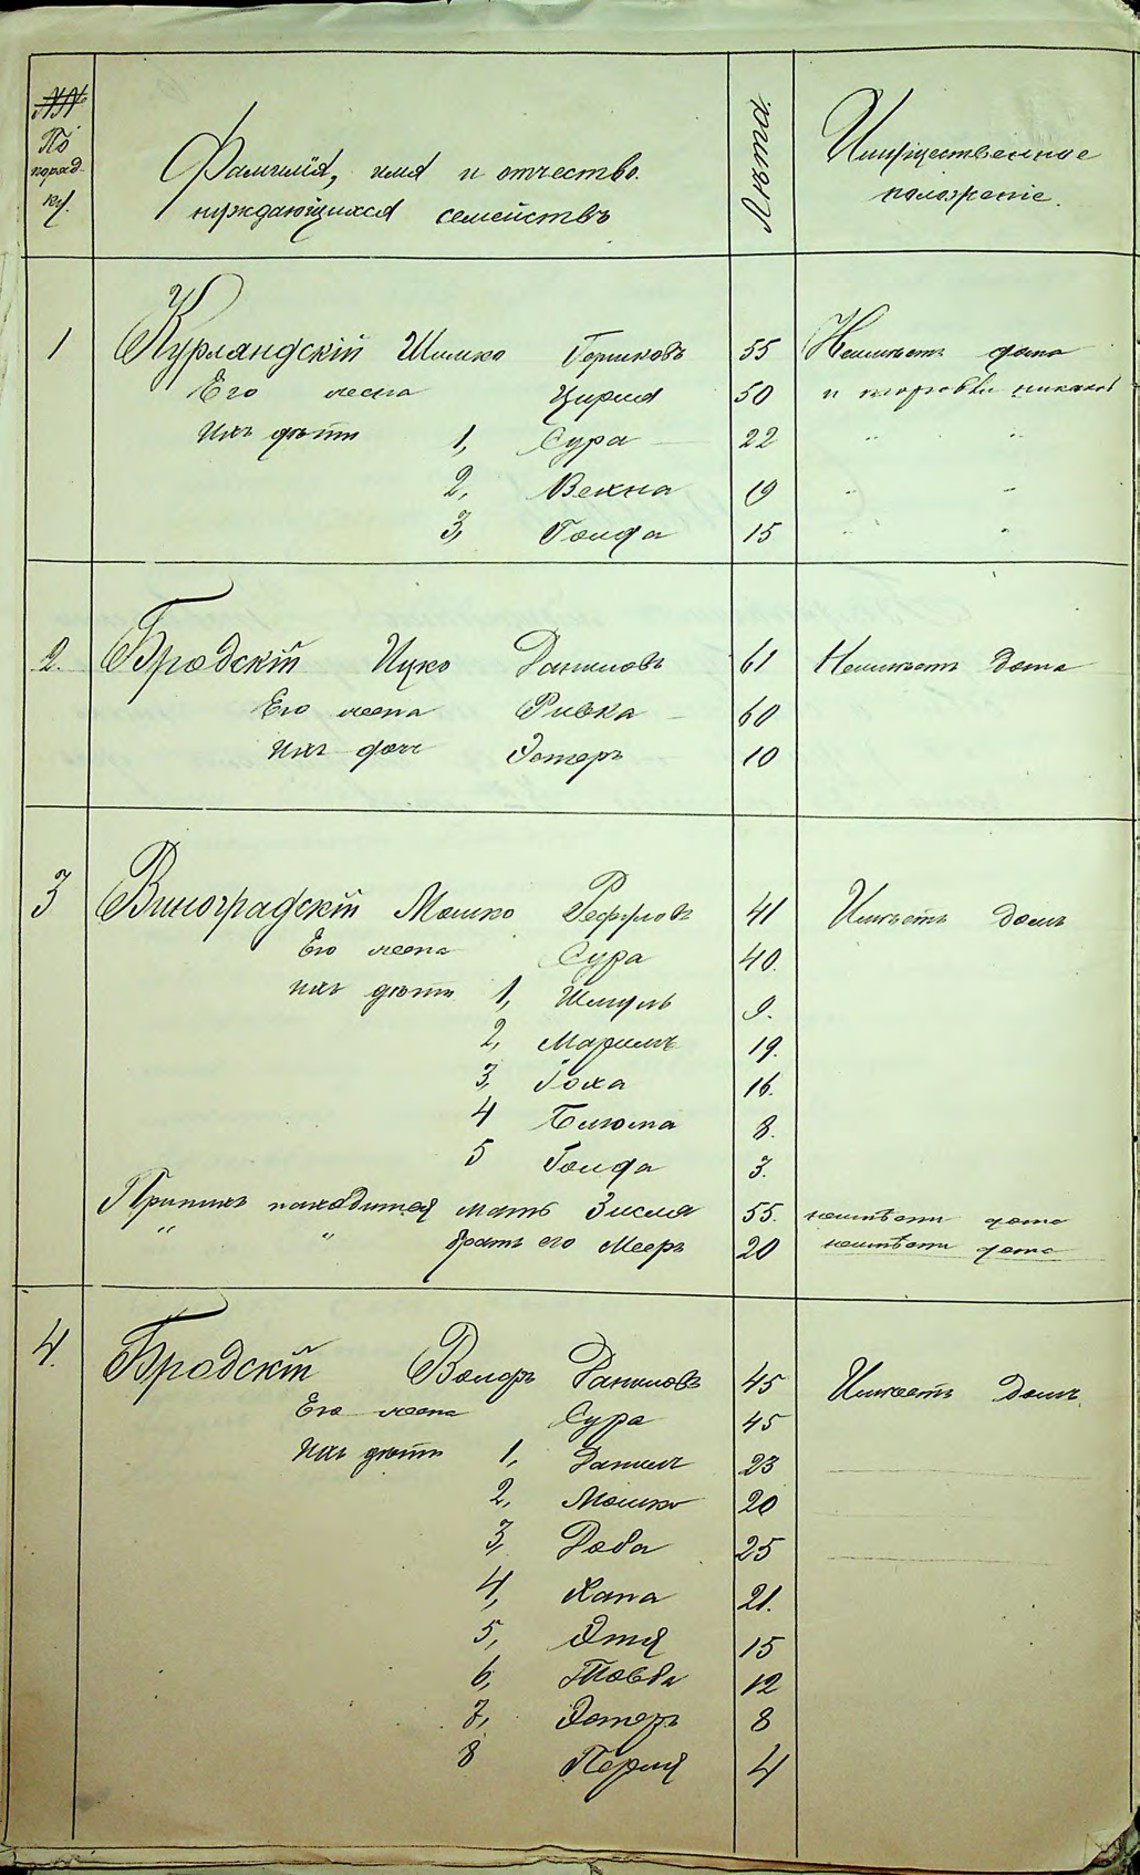 №№ По поряд- ку.
Фамилія, имя и отчество
нуждающихся семействъ
Лѣта.
Имущественное
положеніе.
1 Курляндскій Шимко Гершковъ 55 Неимѣетъ дома
Его жена Цирля 50 и торговли никакой
Ихъ дѣти 1, Сура 22 " "
2, Вехна 19 " "
3, Голда 15 " "
2. Бродскій Ицко Даниловъ 61 Неимѣетъ дома
Его жена Ривка 60
Ихъ доч Эстеръ 10
3 Виноградскій Мошко Рефуловъ 41 Имѣетъ домъ
Его жена Сура 40.
ихъ дѣти 1, Шмуль 9.
2, Маримъ 19.
3, Гоха 16.
4 Блюма 8.
5 Голда 3.
Причихъ находится мать Зисля 55. неимѣетъ дома
" " братъ его Мееръ 20 неимѣетъ дома
4. Бродскій Волфъ Даниловъ 45 Имѣетъ домъ
Его жена Сура 45
Ихъ дѣти 1, Данилъ 23
2, Мошко 20
3, Доба 25
4, Хана 21.
5, Этя 15
6, Товба 12
7, Эстеръ 8
8 Перля 4